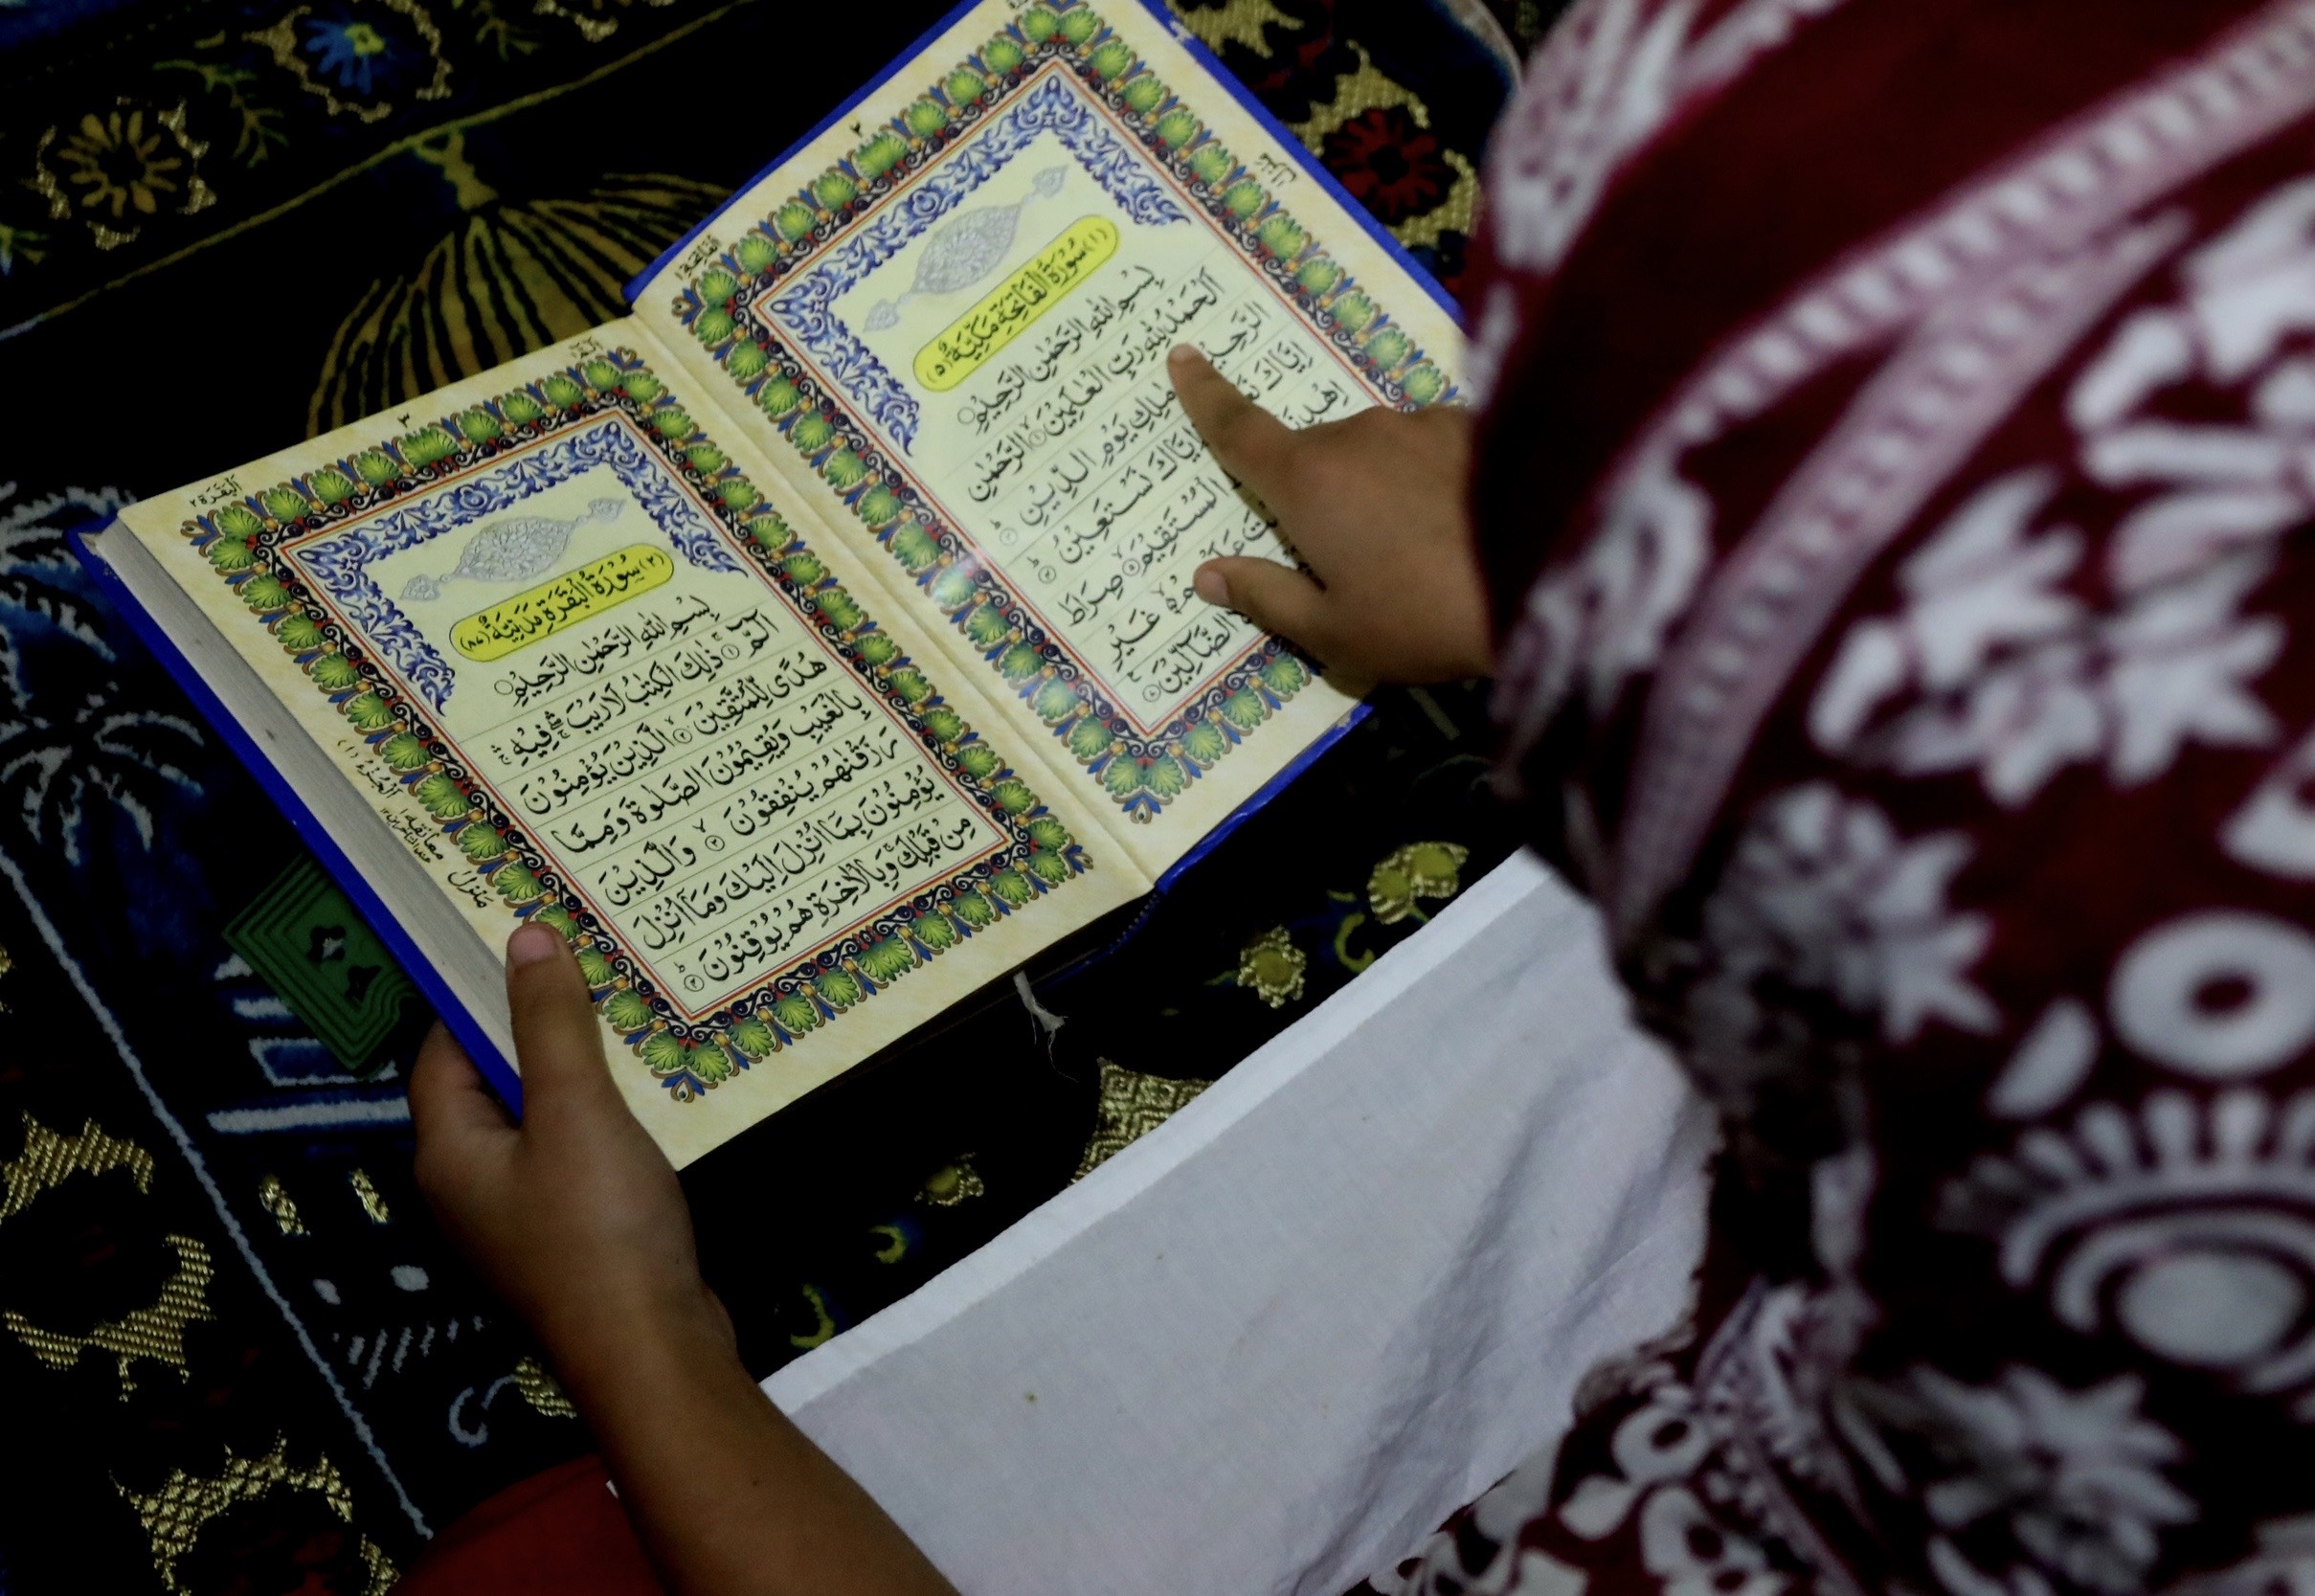 ٢
(١) سُوْرَةُ الْفَاتِحَةِ مَكِّيَّةٌ (٥)
بِسْمِ اللّٰهِ الرَّحْمٰنِ الرَّحِيْمِ
اَلْحَمْدُ لِلّٰهِ رَبِّ الْعٰلَمِيْنَ ١ الرَّحْمٰنِ
الرَّحِيْمِ مٰلِكِ يَوْمِ الدِّيْنِ
اِيَّاكَ وَاِيَّاكَ نَسْتَعِيْنُ
اِهْدِنَا الْمُسْتَقِيْمَ صِرَاطَ
غَيْرِ
الضَّآلِّيْنَ
الفاتحة ١
٣
البقرة ٢
(٢) سُوْرَةُ الْبَقَرَةِ مَدَنِيَّةٌ (٨٧)
بِسْمِ اللّٰهِ الرَّحْمٰنِ الرَّحِيْمِ
الٓمّٓ ١ ذٰلِكَ الْكِتٰبُ لَا رَيْبَ فِيْهِ
هُدًى لِّلْمُتَّقِيْنَ ٢ الَّذِيْنَ يُؤْمِنُوْنَ
بِالْغَيْبِ وَيُقِيْمُوْنَ الصَّلٰوةَ وَمِمَّا
رَزَقْنٰهُمْ يُنْفِقُوْنَ ٣ وَالَّذِيْنَ
يُؤْمِنُوْنَ بِمَآ اُنْزِلَ اِلَيْكَ وَمَآ اُنْزِلَ
مِنْ قَبْلِكَ وَبِالْاٰخِرَةِ هُمْ يُوْقِنُوْنَ ٤
الجزء (١)
معانقة ١
منزل